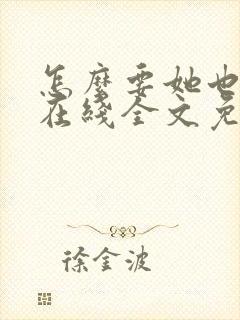 怎麽要她也
在綫全文免
徐金波